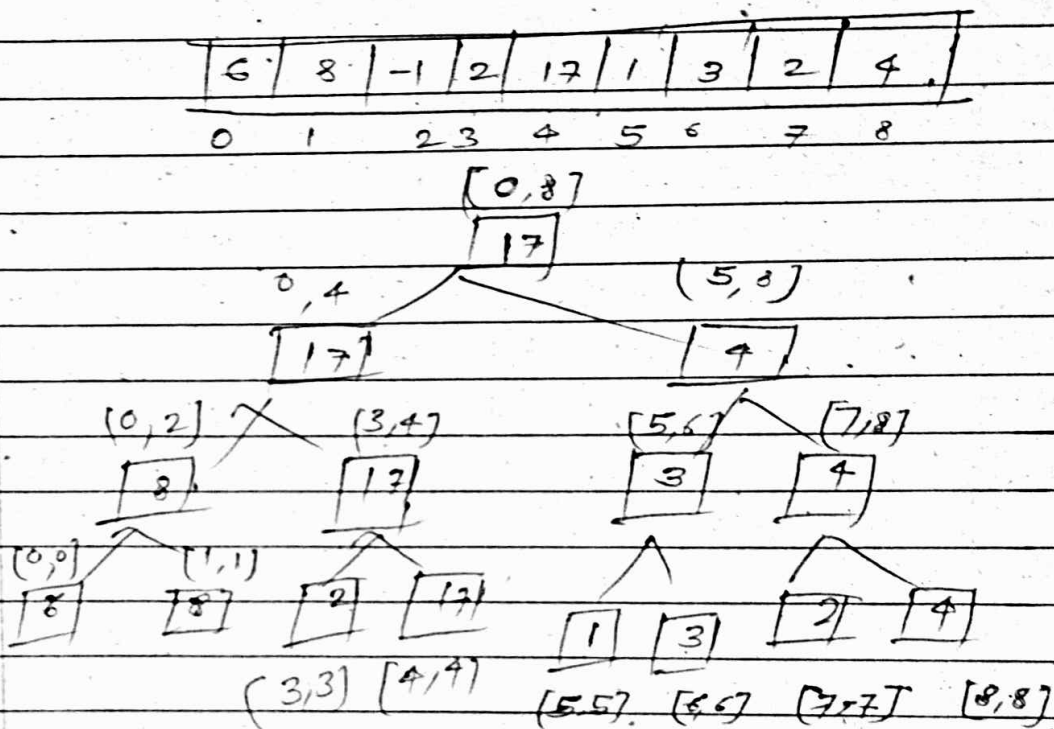 6 8 -1 2 17 1 3 2 4
0 1 2 3 4 5 6 7 8
[0,8]
17
0,4 (5,8]
17 4
[0,2] [3,4] [5,6] [7,8]
8 17 3 4
[0,0] [1,1]
6 8 2 17 1 3 2 4
(3,3) [4,4] [5,5] [6,6] [7,7] [8,8]